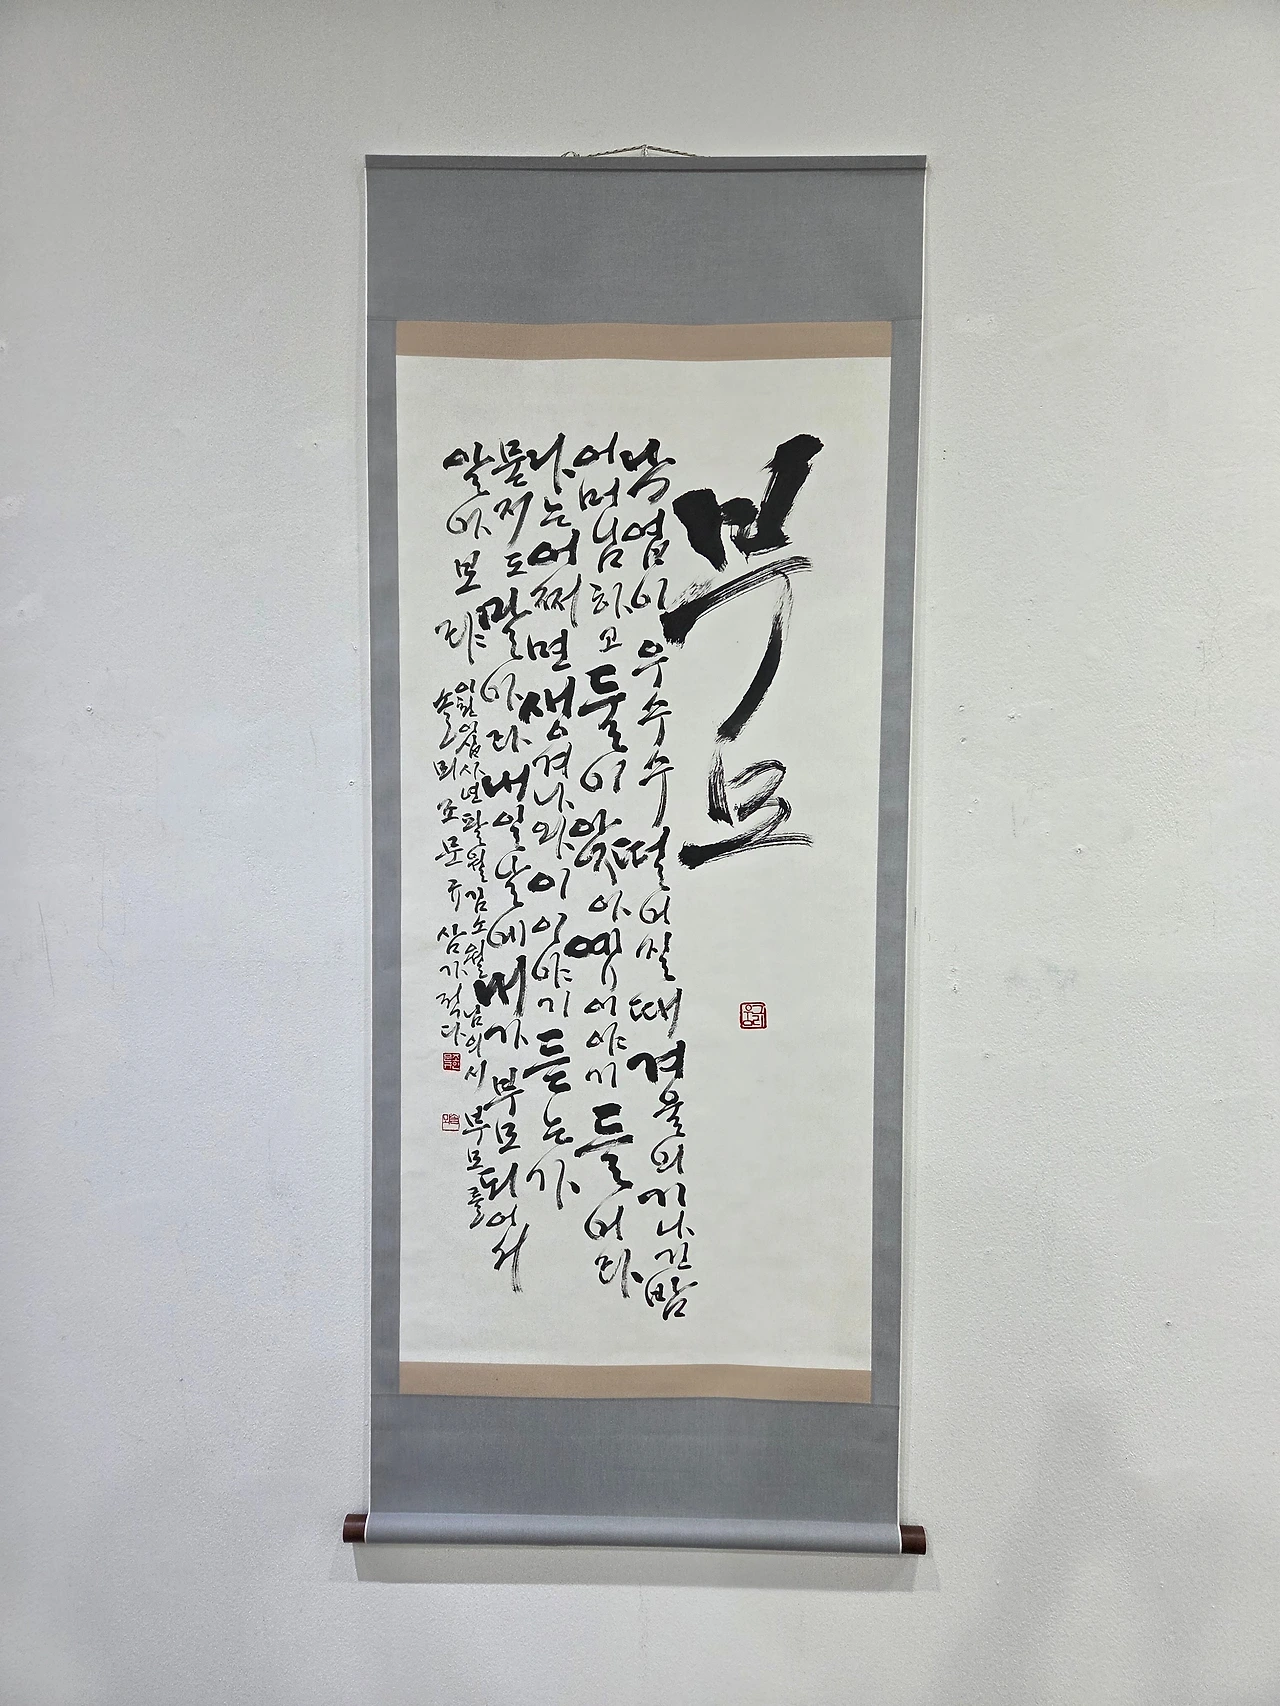 부모
낙엽이 우수수 떨어질 때 겨울의 기나긴 밤
어머님하고 둘이 앉아 옛이야기 들어라
나는 어쩌면 생겨나와 이 이야기 듣는가
묻지도 말아라 내일날에 내가 부모되어서
알아보랴
이천이십사년 팔월 김소월님의 시 부모를
솔뫼 조문규 삼가 적다